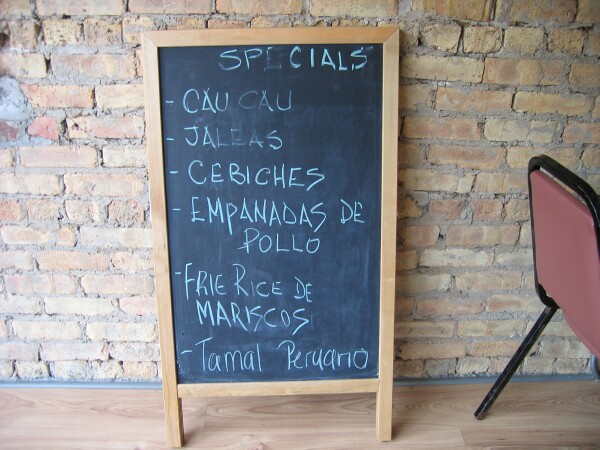 SPECIALS
- CAU CAU
- JALEAS
- CEBICHES
- EMPANADAS DE
POLLO
- FRIE RICE DE
MARISCOS
- Tamal Peruano